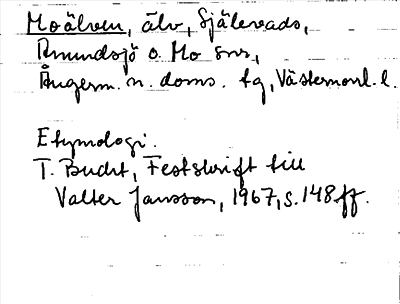 Moälven, älv, Själevads,
Anundsjö o. Mo snr,
Ångerm. n. doms. tg, Västernorrl. l.
Etymologi.
T. Bucht, Festskrift till
Valter Jansson, 1967, s. 148 ff.